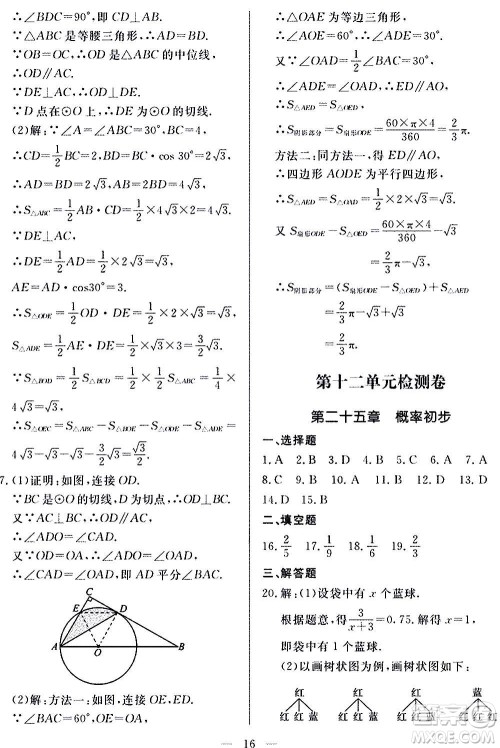 ∴∠BDC=90°,即CD⊥AB.
∵△ABC是等腰三角形,∴AD=BD.
∵OB=OC,∴OD是△ABC的中位线.
∴OD∥AC.
∵DE⊥AC,∴OD⊥DE.
∵D点在⊙O上,∴DE是⊙O的切线.
(2)解:∵∠A=∠B=30°,BC=4,
∴CD=1/2BC=2,BD=BC·cos30°=2√3.
∴AD=BD=2√3,AB=2BD=4√3.
∴S△ABC=1/2AB·CD=1/2×4√3×2=4√3.
∵DE⊥AC,
∴DE=1/2AD=1/2×2√3=√3,
AE=AD·cos30°=3.
∴S△ODE=1/2OD·DE=1/2×2×√3=√3,
S△ADE=1/2AE·DE=1/2×√3×3=3/2√3.
∵S△BOD=1/2S△BCD=1/2×1/2S△ABC=1/4×4√3=√3,
∴S△OEC=S△ABC-S△BOD-S△ODE-S△ADE=4√3-√3-√3-3/2√3=√3/2.
(1)证明:如图,连接OD.
∵BC是⊙O的切线,D为切点,∴OD⊥BC.
又∵AC⊥BC,∴OD∥AC.∴∠ADO=∠CAD.
又∵OD=OA,∴∠ADO=∠OAD.
∴∠CAD=∠OAD,即AD平分∠BAC.
C
E
D
A
O
B
(2)解:方法一:如图,连接OE,ED.
∵∠BAC=60°,OE=OA,
∴△OAE为等边三角形.
∴∠AOE=60°.∴∠ADE=30°.
又∵∠OAD=1/2∠BAC=30°,
∴∠ADE=∠OAD.∴ED∥AO.
∴S△AED=S△OED.
∴S阴影部分=S扇形ODE=60×π×4/360=2/3π.
方法二:同方法一,得ED∥AO,
∴四边形AODE为平行四边形.
∴S△AED=S△OED=1/2×2×√3=√3.
又S扇形ODE-S△OED=60×π×4/360-√3
=2/3π-√3.
∴S阴影部分=(S扇形ODE-S△OED)+S△AED
=2/3π-√3+√3
=2/3π.
第十二单元检测卷
第二十五章 概率初步
一、选择题
1.A 2.D 3.A 4.A 5.B 6.D 7.A
8.C 9.D 10.A 11.C 12.C 13.A
14.D 15.B
二、填空题
16.2/5 17.1/3 18.1/9 19.1/6
三、解答题
20.解:(1)设袋中有x个蓝球.
根据题意,得3/(3+x)=0.75.解得x=1.
即袋中有1个蓝球.
(2)以画树状图为例,画树状图如下:
红 红 红 蓝
红红蓝 红红蓝 红红蓝
16